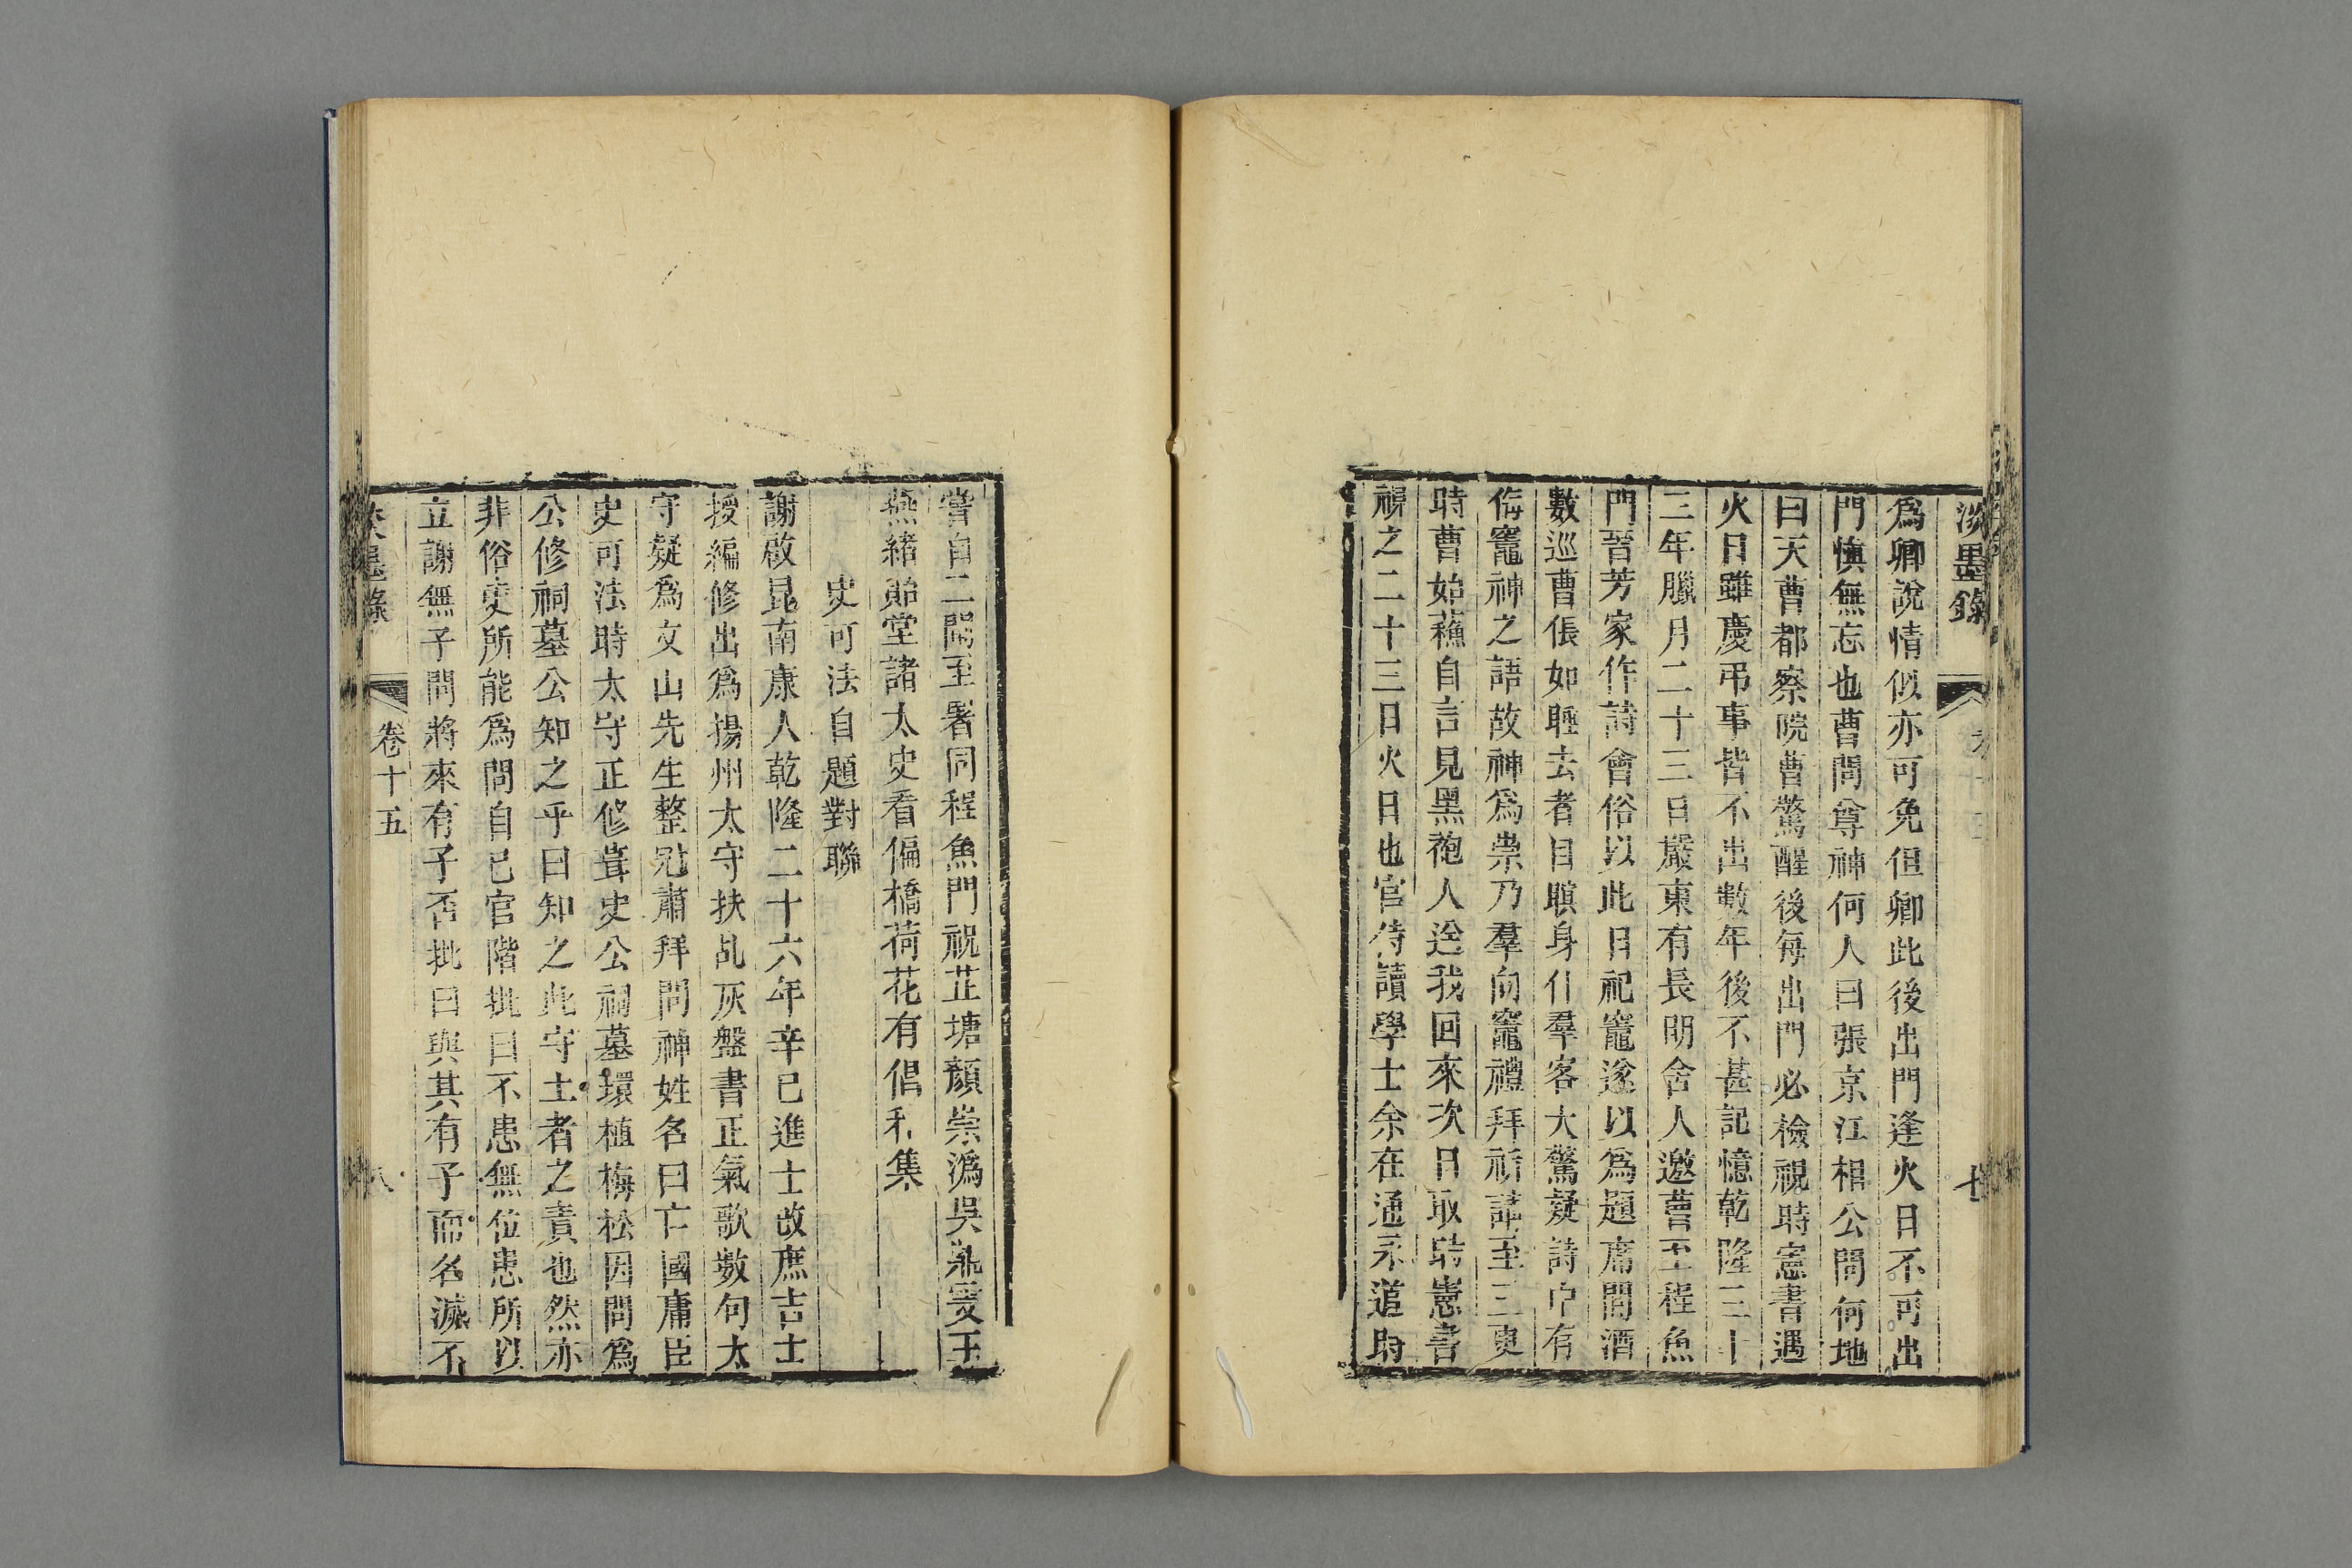 淡墨錄
七
爲卿說情似亦可免但卿此後出門逢火日不可出
門慎無忘也曹問尊神何人曰張京江相公問何地
曰天曹都察院曹驚醒後每出門必檢視時憲書遇
火日雖慶弔事皆不出數年後不甚記憶乾隆三十
三年臘月二十三日嚴東有長明舍人邀曹至程魚
門晉芳家作詩會俗以此日祀竈遂以爲題席間酒
數巡曹倀如睡去者目瞑身仆羣客大驚疑詩中有
侮竈神之語故神爲祟乃羣向竈禮拜祈請至三更
時曹始蘓自言見黑袍人送我回來次日取時憲書
視之二十三日火日也官侍讀學士余在通永道時
嘗自二閘至署同程魚門祝芷塘顏崇潙吳
燕緒節堂諸太史看偏橋荷花有倡和集
史可法自題對聯
謝啟昆南康人乾隆二十六年辛巳進士改庶吉士
授編修出爲揚州太守扶乩灰盤書正氣歌數句太
守疑爲文山先生整冠肅拜問神姓名曰亡國庸臣
史可法時太守正修葺史公祠墓環植梅松因問爲
公修祠墓公知之乎曰知之此守土者之責也然亦
非俗吏所能爲問自己官階批曰不患無位患所以
立謝無子問將來有子否批曰與其有子而名滅不
卷十五
八